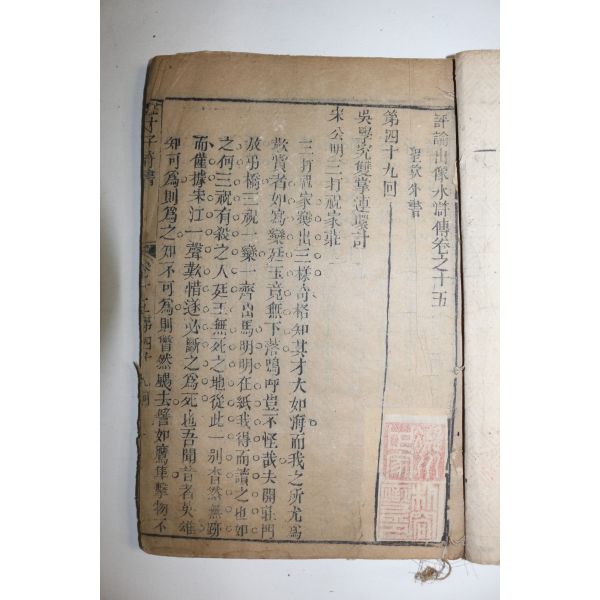 評論出像水滸傳卷之十五
聖歎外書
第四十九回
吳學究雙掌連環計
宋公明三打祝家莊
三打祝家變出三樣奇格知其才大如海而我之所尤爲
歎賞者如寫欒廷玉竟無下落嗚呼豈不怪哉夫開莊門
放弔橋三祝一欒一齊出馬明明在紙我得而讀之也如
之何三祝有殺之人廷玉無死之地從此一別杳然無跡
而僅據宋江一聲歎惜遂必斷之爲死也吾聞昔者英雄
知可爲則爲之知不可爲則瞥然颺去譬如鷹隼擊物不
才子書